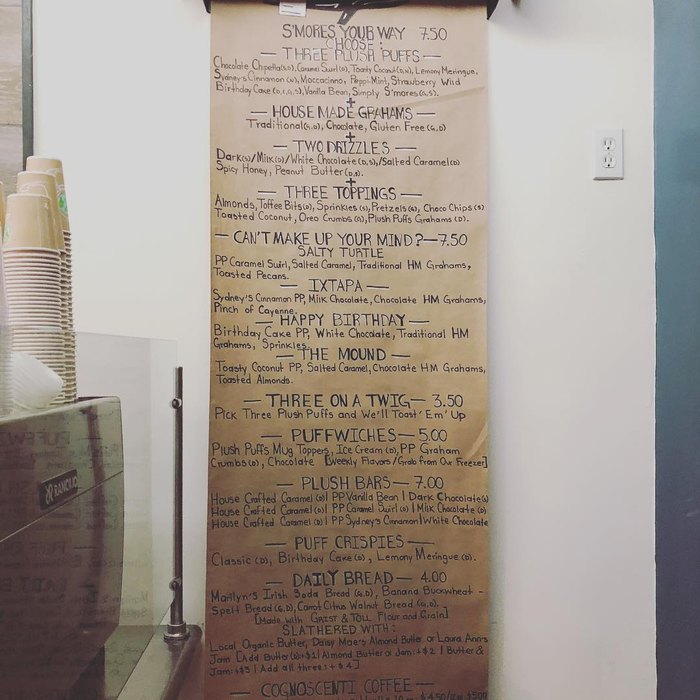 S'MORES YOUR WAY 7.50
CHOOSE:
— THREE PLUSH PUFFS —
Chocolate Chipetta(S,D), Caramel Swirl(D), Toasty Coconut(D,N), Lemony Meringue,
Sydney's Cinnamon(W), Moccacinno, Peppi-Mint, Strawberry Wild
Birthday Cake(D,I,G,S), Vanilla Bean, Simply S'mores(G,S).
+
— HOUSE MADE GRAHAMS —
Traditional(G,D), Chocolate, Gluten Free(G,D)
+
— TWO DRIZZLES —
Dark(S)/Milk(D)/White Chocolate(D,S)/Salted Caramel(D)
Spicy Honey, Peanut Butter(D,S).
+
— THREE TOPPINGS —
Almonds, Toffee Bits(D), Sprinkles(S), Pretzels(G), Choco Chips(S)
Toasted Coconut, Oreo Crumbs(G), Plush Puffs Grahams(D).
— CAN'T MAKE UP YOUR MIND? — 7.50
SALTY TURTLE
PP Caramel Swirl, Salted Caramel, Traditional HM Grahams,
Toasted Pecans.
— IXTAPA —
Sydney's Cinnamon PP, Milk Chocolate, Chocolate HM Grahams,
Pinch of Cayenne.
— HAPPY BIRTHDAY —
Birthday Cake PP, White Chocolate, Traditional HM
Grahams, Sprinkles.
— THE MOUND —
Toasty Coconut PP, Salted Caramel, Chocolate HM Grahams,
Toasted Almonds.
— THREE ON A TWIG — 3.50
Pick Three Plush Puffs and We'll Toast 'Em' Up
— PUFFWICHES — 5.00
Plush Puffs Mug Toppers, Ice Cream(D), PP Graham
Crumbs(D), Chocolate [Weekly Flavors/Grab from Our Freezer]
— PLUSH BARS — 7.00
House Crafted Caramel(D) | PP Vanilla Bean | Dark Chocolate(S)
House Crafted Caramel(D) | PP Caramel Swirl(D) | Milk Chocolate(D)
House Crafted Caramel(D) | PP Sydney's Cinnamon | White Chocolate
— PUFF CRISPIES —
Classic(D), Birthday Cake(D), Lemony Meringue(D).
— DAILY BREAD — 4.00
Marilyn's Irish Soda Bread(G,D), Banana Buckwheat-
Spelt Bread(G,D), Carrot Citrus Walnut Bread(G,D).
[Made with GRIST & TOLL Flour and Grain]
SLATHERED WITH:
Local Organic Butter, Daisy Mae's Almond Butter or Laura Ann's
Jam [Add Butter(D):+$1 | Almond Butter or Jam:+$2 | Butter &
Jam:+$3 | Add all three:+$4]
— COGNOSCENTI COFFEE —
RANCILIO